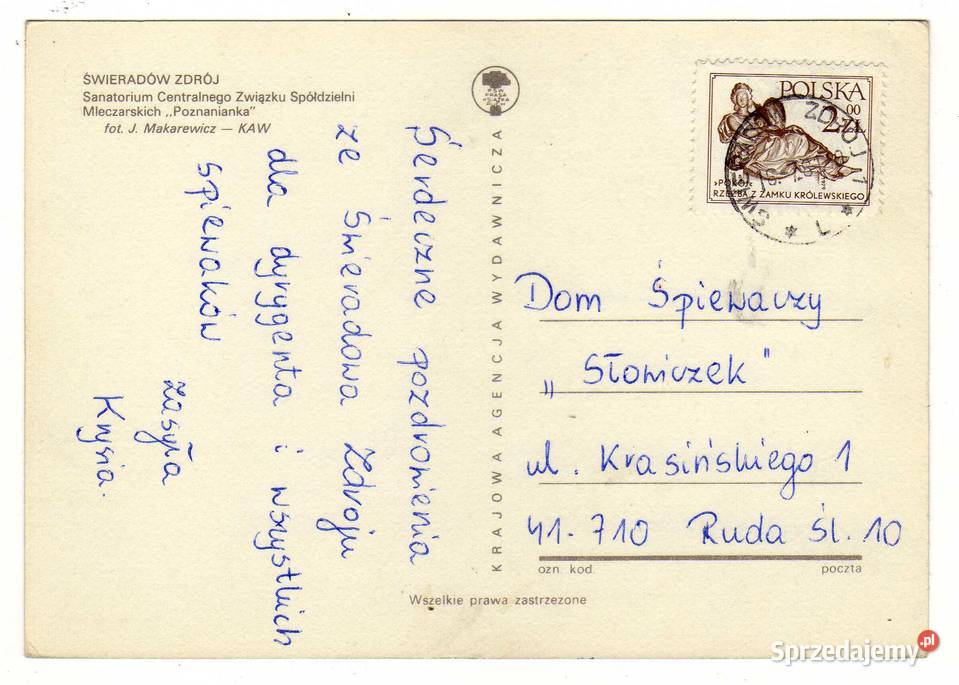 ŚWIERADÓW ZDRÓJ
Sanatorium Centralnego Związku Spółdzielni
Mleczarskich „Poznanianka"
fot. J. Makarewicz — KAW
Serdeczne pozdrowienia
ze Świeradowa Zdroju
dla dyrygenta i wszystkich
śpiewaków
zasyła
Krysia.
KRAJOWA AGENCJA WYDAWNICZA
RSW
PRASA
KSIĄŻKA
RUCH
POLSKA
2 00 ZŁ
›POKÓJ‹
RZEŹBA Z ZAMKU KRÓLEWSKIEGO
ZDRÓJ 1
Dom Śpiewaczy
„Słowiczek"
ul. Krasińskiego 1
41-710 Ruda Śl. 10
ozn. kod. poczta
Wszelkie prawa zastrzeżone
Sprzedajemy.pl